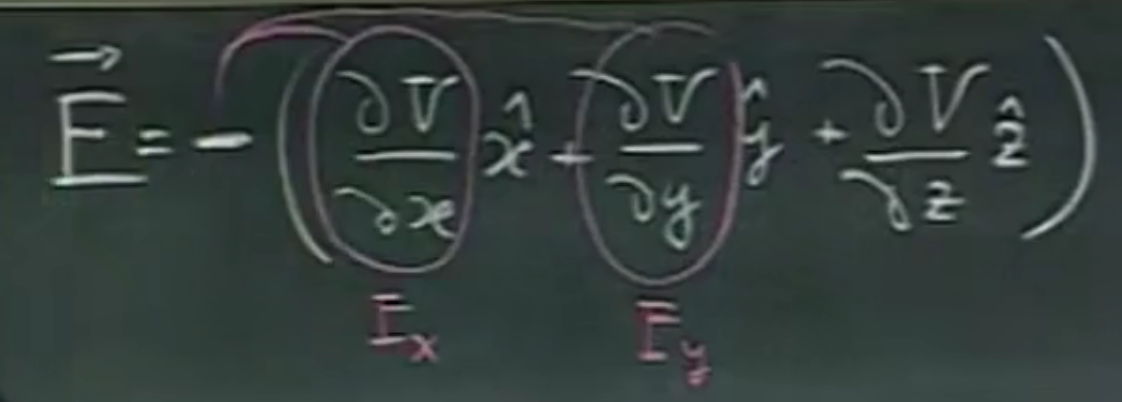 E⃗ = - (∂V/∂x x̂ + ∂V/∂y ŷ + ∂V/∂z ẑ)
Ex Ey